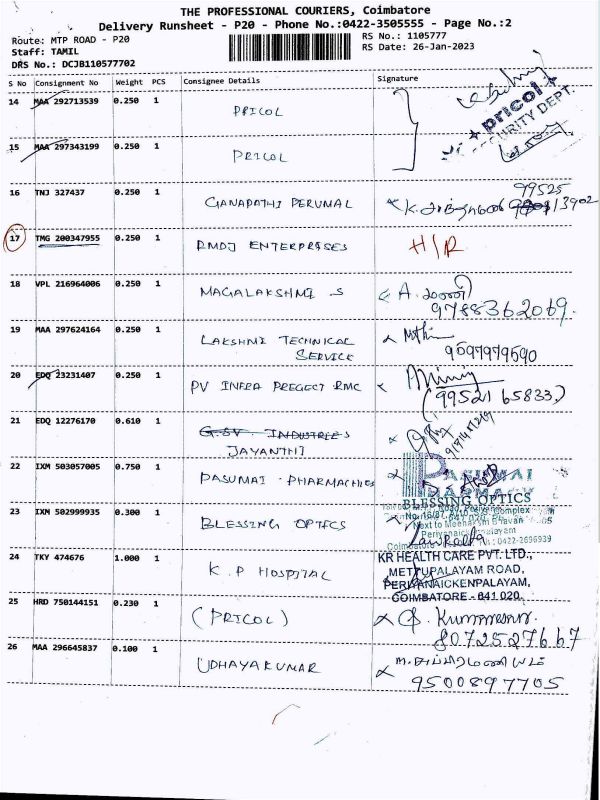 THE PROFESSIONAL COURIERS, Coimbatore
Delivery Runsheet - P20 - Phone No.:0422-3505555 - Page No.:2
Route: MTP ROAD - P20 RS No.: 1105777
Staff: TAMIL RS Date: 26-Jan-2023
DRS No.: DCJB110577702
S No Consignment No Weight PCS Consignee Details Signature
14 MAA 292713539 0.250 1 PRICOL
pricol
SECURITY DEPT.
15 MAA 297343199 0.250 1 PRICOL
16 TNJ 327437 0.250 1 GANAPATHI PERUMAL 99525
13902
17 TMG 200347955 0.250 1 RMDJ ENTERPRISES H/R
18 VPL 216964006 0.250 1 MAGALAKSHMI S A.
9788362069.
19 MAA 297624164 0.250 1 LAKSHMI TECHNICAL
SERVICE 9597979590
20 EDQ 23231407 0.250 1 PV INFRA PREGECT RMC
(99521 65833)
21 EDQ 12276170 0.610 1 G.SV. INDUSTRIES
JAYANTHI
22 IXM 503057005 0.750 1 PASUMAI - PHARMACHIES
PASUMAI
PHARMACY
23 IXM 502999935 0.300 1 BLESSING OPTICS
BLESSING OPTICS
Complex
Next to Meenakshi Bhavan
Periyanaickenpalayam
Coimbatore Ph: 0422-2696939
24 TKY 474676 1.000 1 K.P HOSPITAL
KR HEALTH CARE PVT. LTD.,
METTUPALAYAM ROAD,
PERIYANAICKENPALAYAM,
COIMBATORE - 641 020.
25 HRD 750144151 0.230 1 (PRICOL)
8072527667
26 MAA 296645837 0.100 1 UDHAYAKUMAR
9500897705